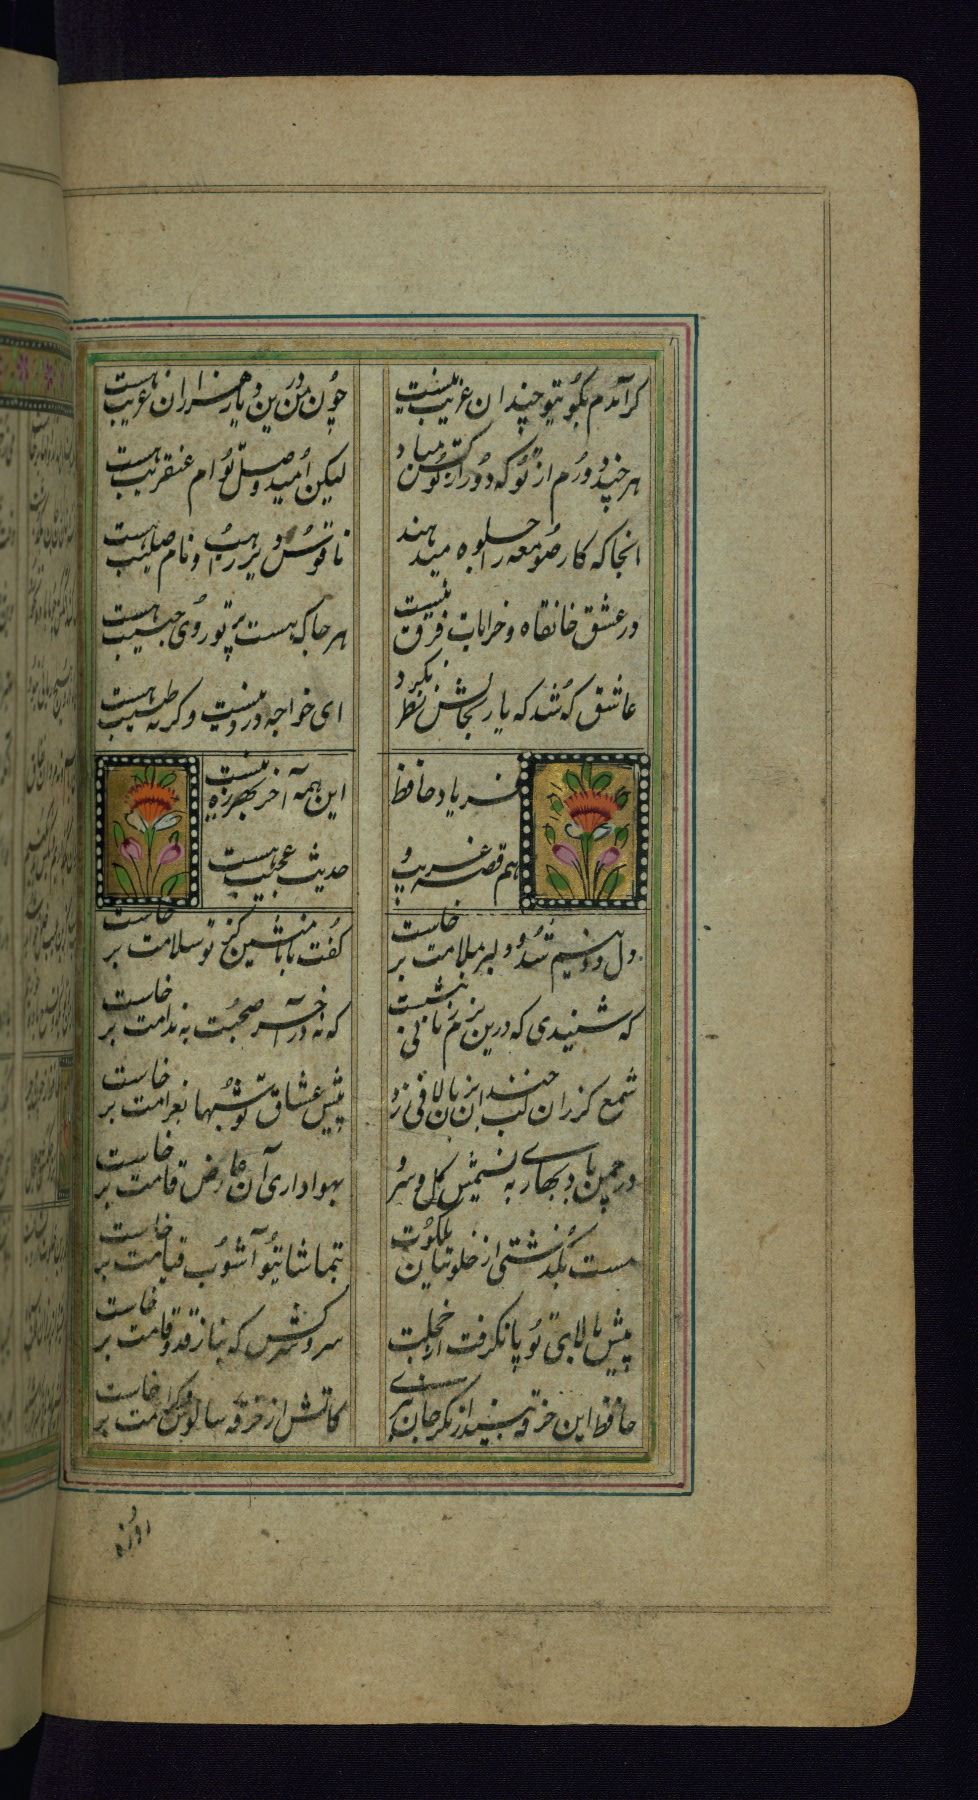 کر آمدم بکوی تو چندان غریب نیست
چون من درین دیار هزاران غریب هست
هر چند دورم از تو که دور از تو کس مباد
لیکن امید وصل توام عنقریب هست
انجا که کار صومعه را جلوه میدهند
ناقوس و دیر راهب و نام صلیب هست
در عشق خانقاه و خرابات فرق نیست
هر جا که هست پرتو روی حبیب هست
عاشق که شد که یار بحالش نظر نکرد
ای خواجه درد نیست وکرنه طبیب هست
فریاد حافظ این همه آخر بهرزه نیست
هم قصه غریب و حدیث عجیب هست
دل و دینم شد و دلبر بملامت برخاست
کفت با ما منشین کز تو سلامت برخاست
که شنیدی که درین بزم دمی خوش بنشست
که نه در آخر صحبت بندامت برخاست
شمع کر زان لب خندان بزبان لافی زد
پیش عشاق تو شبها بغرامت برخاست
در چمن باد بهاری به نسیمش کل و سرو
بهواداری آن عارض قامت برخاست
مست بکذشتی از خلوتیان ملکوت
بتماشای تو آشوب قیامت برخاست
پیش بالای تو پا نکرفت از خجلت
سرو سرکش که بناز قد و قامت برخاست
حافظ این خرقه بینداز مکر جان ببری
کاتش از خرقه سالوس و کرامت برخاست